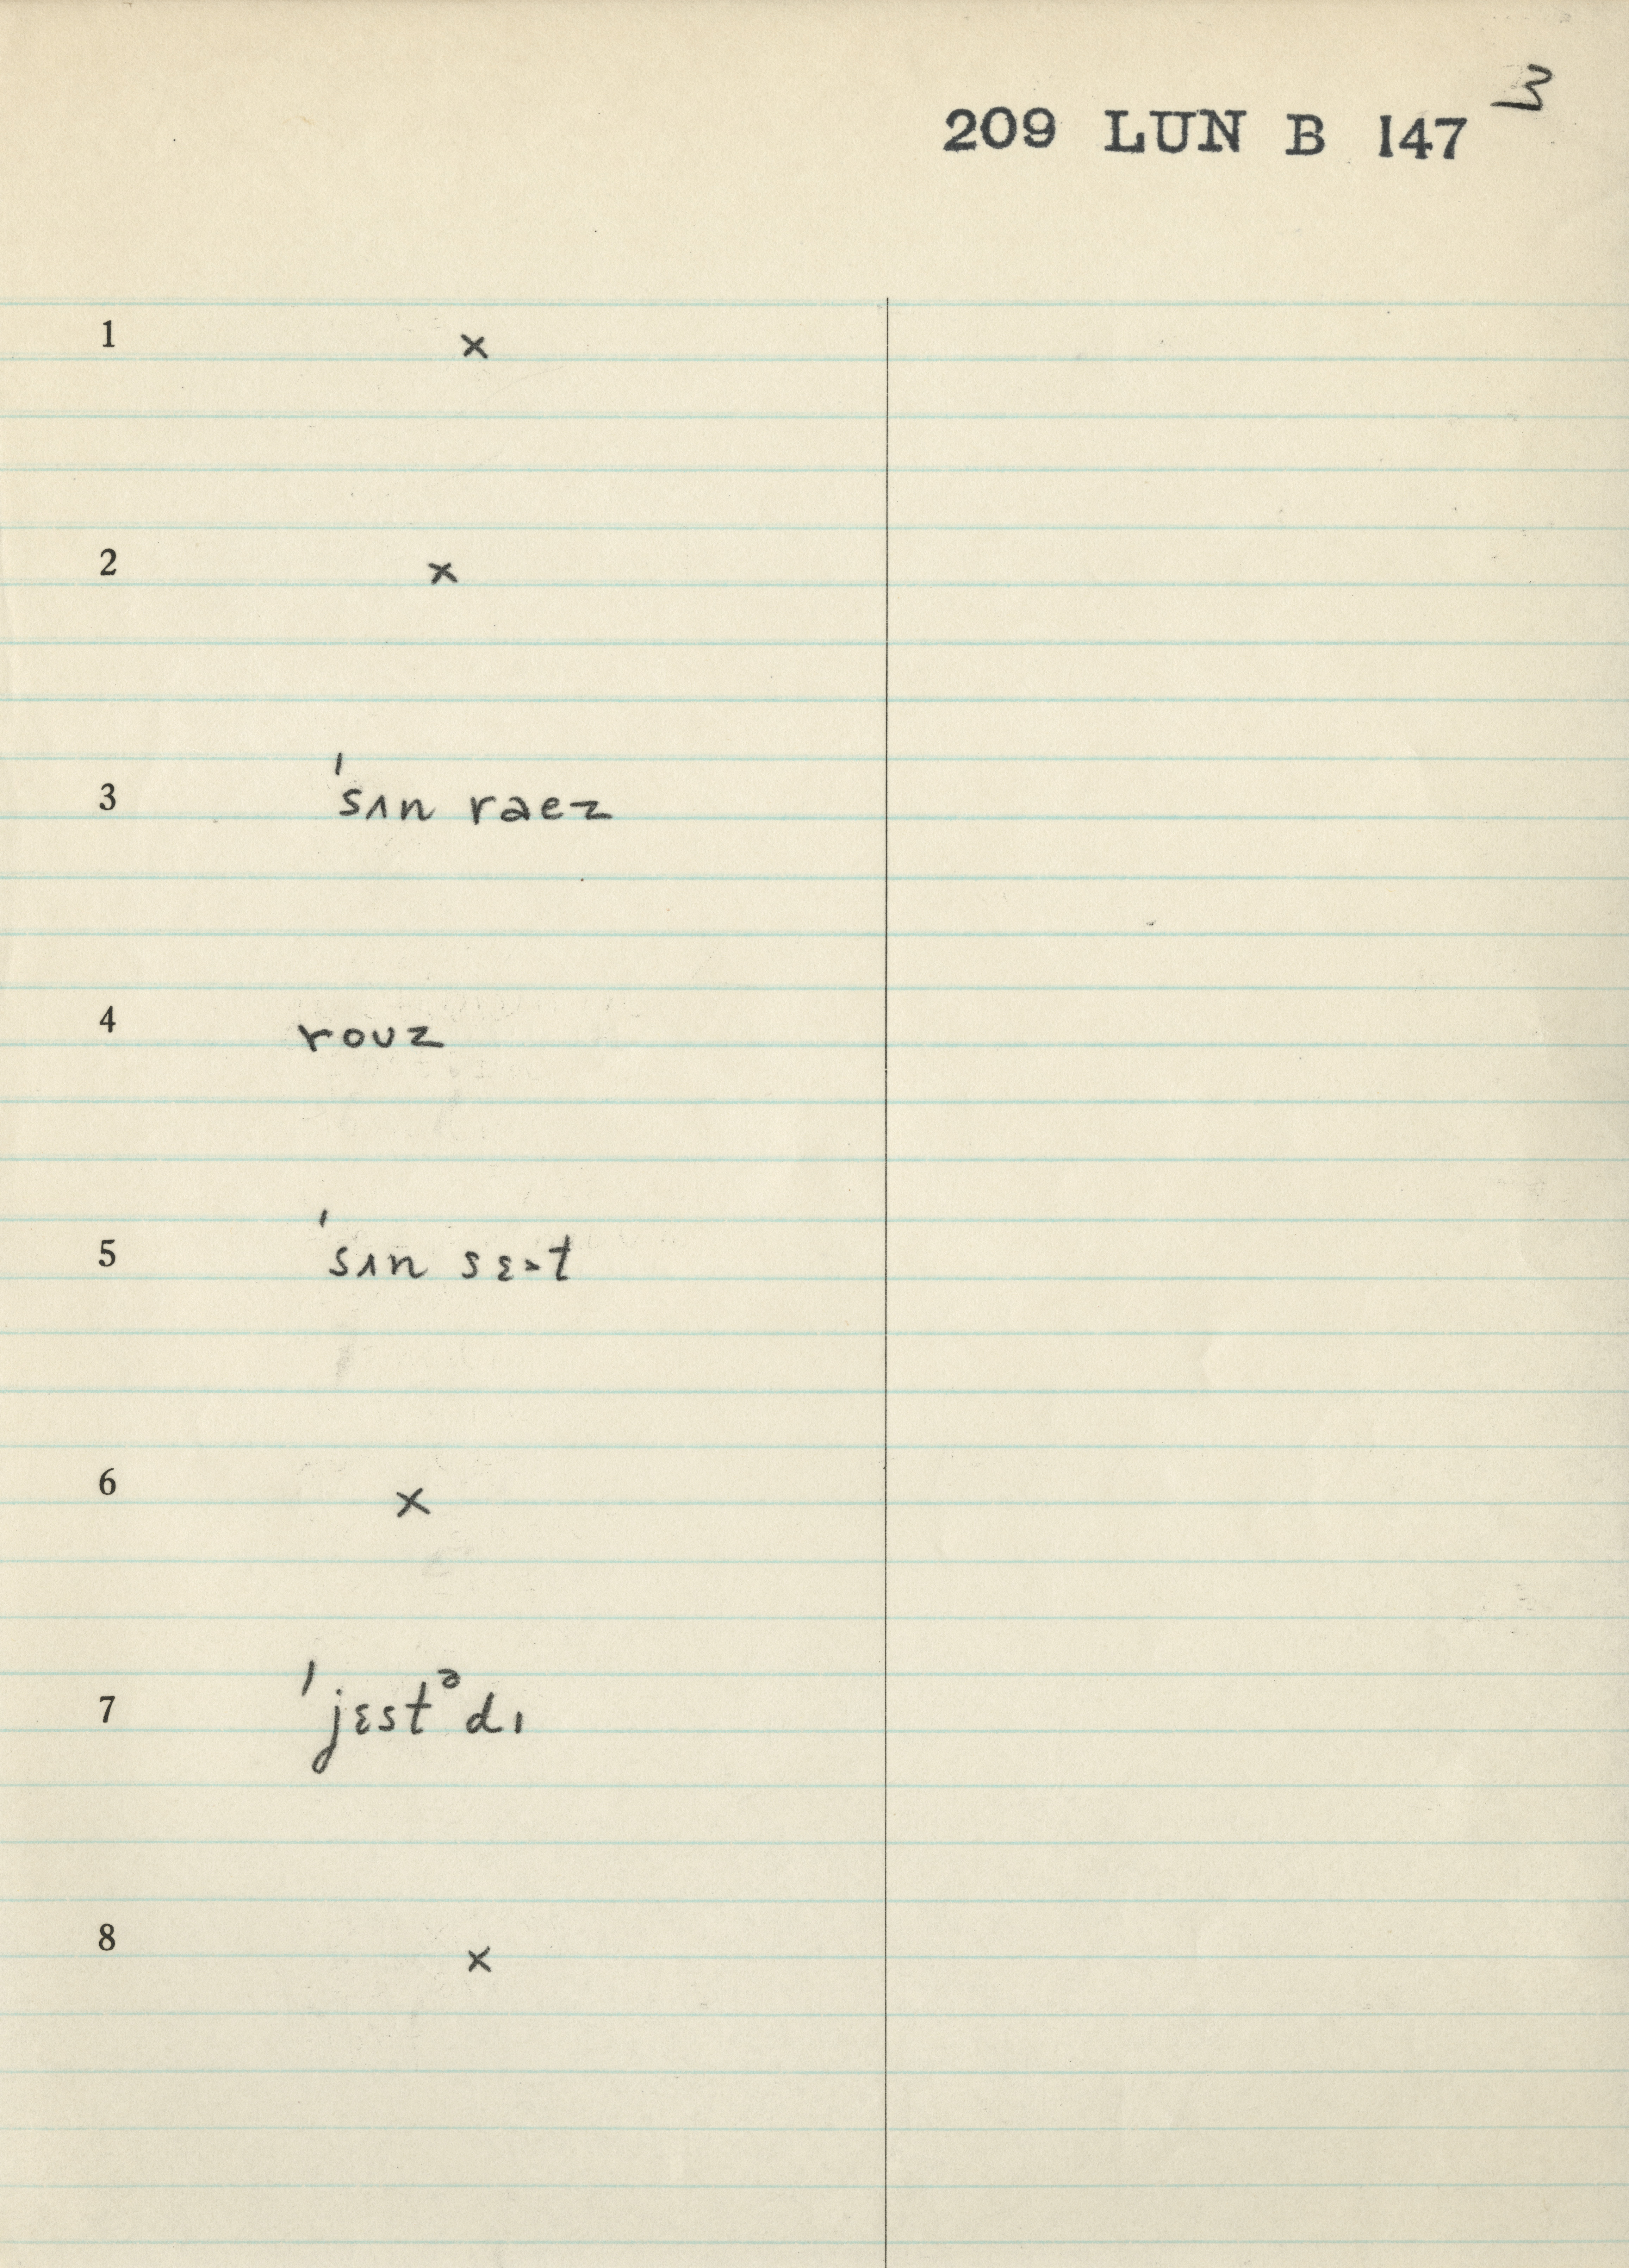 209 LUN B 147 3
1 ×
2 ×
3 ˈsʌn raez
4 roᴜz
5 ˈsʌn sɛ˃t
6 ×
7 ˈjɛstᵊdɪ
8 ×